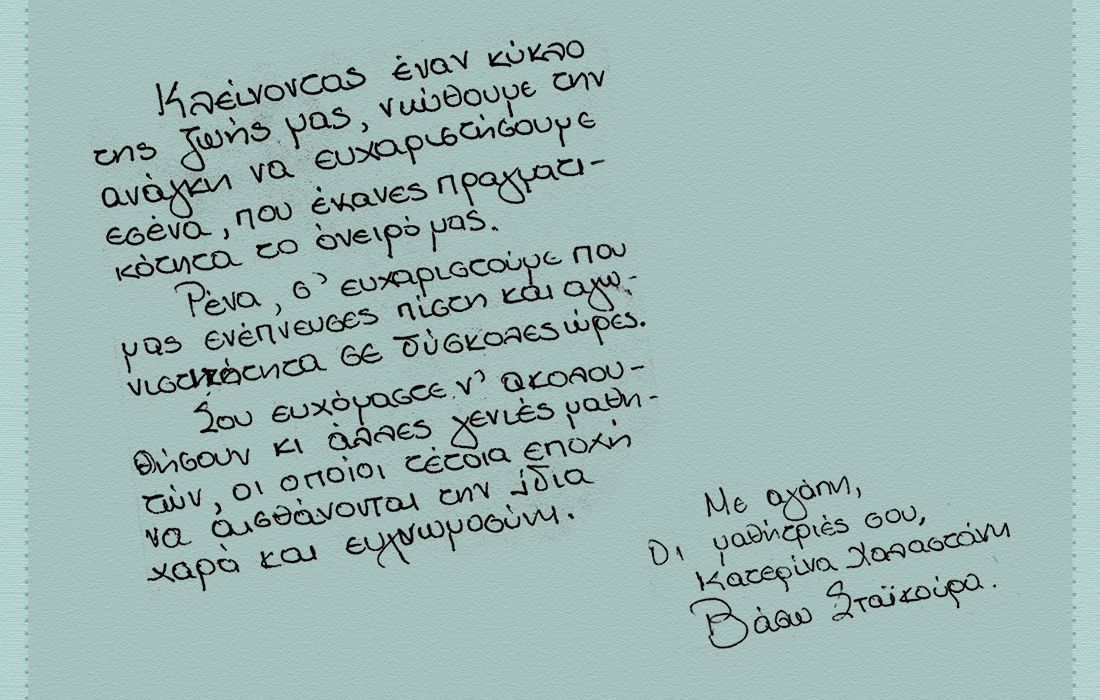 Κλείνοντας έναν κύκλο
της ζωής μας, νιώθουμε την
ανάγκη να ευχαριστήσουμε
εσένα, που έκανες πραγματι-
κότητα το όνειρό μας.
Ρένα, σ' ευχαριστούμε που
μας ενέπνευσες πίστη και αγω-
νιστικότητα σε δύσκολες ώρες.
Σου ευχόμαστε ν' ακολου-
θήσουν κι άλλες γενιές μαθη-
τών, οι οποίοι τέτοια εποχή
να αισθάνονται την ίδια
χαρά και ευγνωμοσύνη.
Με αγάπη,
Οι μαθήτριές σου,
Κατερίνα Χαλαστάνη
Βάσω Σταϊκούρα.